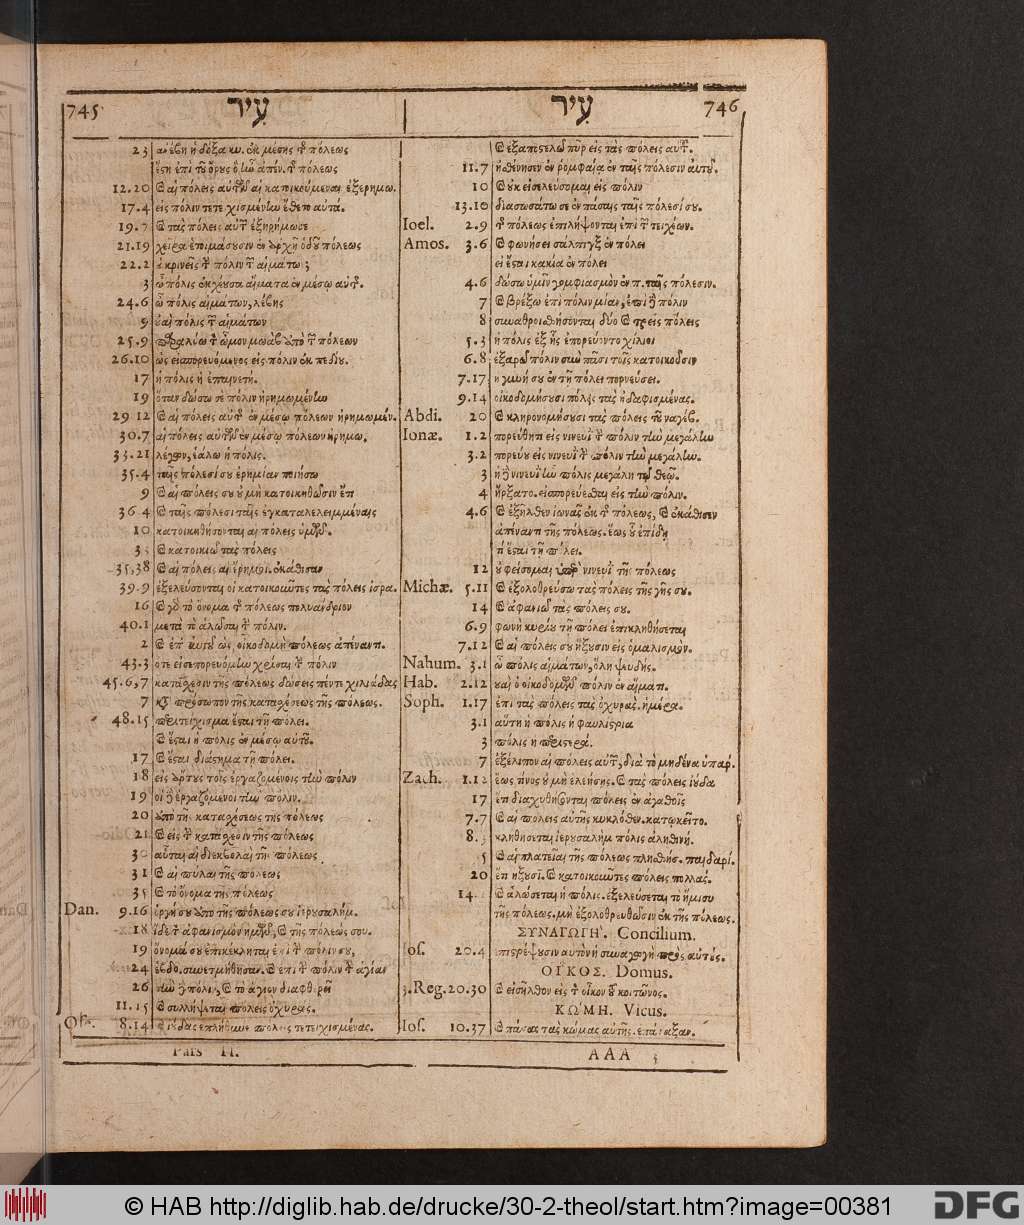 745 עִיר
23 ἀνέβη ἡ δόξα κυ. ἐκ μέσης τῆς πόλεως
12.20 καὶ αἱ πόλεις αὐτῶν αἱ κατοικούμεναι ἐξερημω.
17.4 εἰς πόλιν τετειχισμένην ἔθετο αὐτά.
19.7 καὶ τὰς πόλεις αὐτῶν ἐξηρήμωσε
21.19 χεῖρα ἑτοιμάσουσιν ἐν ἀρχῇ ὁδοῦ πόλεως
22.2 εἰ κρινεῖς τὴν πόλιν τῶν αἱμάτων;
3 ὦ πόλις ἐκχέουσα αἵματα ἐν μέσῳ αὐτῆς.
24.6 ὦ πόλις αἱμάτων, λέβης
9 οὐαὶ πόλις τῶν αἱμάτων
25.9 παραλύω τὸν ὦμον μωὰβ ἀπὸ τῶν πόλεων
26.10 ὡς εἰσπορευόμενος εἰς πόλιν ἐκ πεδίου.
17 ἡ πόλις ἡ ἐπαινετή.
19 ὅταν δώσω σε πόλιν ἠρημωμένην
29.12 καὶ αἱ πόλεις αὐτῆς ἐν μέσῳ πόλεων ἠρημωμέν.
30.7 αἱ πόλεις αὐτῶν ἐν μέσῳ πόλεων ἠρημω.
33.21 λέγων, ἑάλω ἡ πόλις.
35.4 ταῖς πόλεσί σου ἐρημίαν ποιήσω
9 καὶ αἱ πόλεις σου οὐ μὴ κατοικηθῶσιν ἔτι
36.4 καὶ ταῖς πόλεσι ταῖς ἐγκαταλελειμμέναις
10 κατοικηθήσονται αἱ πόλεις ὑμῶν.
33 καὶ κατοικιῶ τὰς πόλεις
35,38 καὶ αἱ πόλεις αἱ ἔρημοι. ἐκάθισαν
39.9 ἐξελεύσονται οἱ κατοικοῦντες τὰς πόλεις ἰσρα.
16 καὶ γὰρ τὸ ὄνομα τῆς πόλεως πολυάνδριον
40.1 μετὰ τὸ ἁλῶναι τὴν πόλιν.
2 καὶ ἐπ' αὐτοῦ ὡς, οἰκοδομὴ πόλεως ἀπέναντι.
43.3 ὅτε εἰσεπορευόμην χρίσαι τὴν πόλιν
45.6,7 κατάσχεσιν τῆς πόλεως δώσεις πέντε χιλιάδας
7 κατὰ πρόσωπον τῆς κατασχέσεως τῆς πόλεως.
48.15 προτείχισμα ἔσται τῇ πόλει.
καὶ ἔσται ἡ πόλις ἐν μέσῳ αὐτοῦ.
17 καὶ ἔσται διάστημα τῇ πόλει.
18 εἰς ἄρτους τοῖς ἐργαζομένοις τὴν πόλιν
19 οἱ δὲ ἐργαζόμενοι τὴν πόλιν.
20 ἀπὸ τῆς κατασχέσεως τῆς πόλεως
21 καὶ εἰς τὴν κατάσχεσιν τῆς πόλεως
30 αὗται αἱ διεκβολαὶ τῆς πόλεως
31 καὶ αἱ πύλαι τῆς πόλεως
35 καὶ τὸ ὄνομα τῆς πόλεως
Dan. 9.16 ὀργή σου ἀπὸ τῆς πόλεως σου ἱερυσαλήμ.
18 ἴδε τὸν ἀφανισμὸν ἡμῶν, καὶ τῆς πόλεώς σου.
19 ὄνομά σου ἐπικέκληται ἐπὶ τὴν πόλιν σου,
24 ἑβδο. συνετμήθησαν. καὶ ἐπὶ τὴν πόλιν τὴν ἁγίαν
26 τὴν δὲ πόλιν, καὶ τὸ ἅγιον διαφθερεῖ
11.15 καὶ συλλήψεται πόλεις ὀχυράς.
8.14 καὶ ἰούδας ἐπλήθυνε πόλεις τετειχισμένας.
Pars II.
עִיר 746
καὶ ἐξαποστελῶ πῦρ εἰς τὰς πόλεις αὐτῶν.
11.7 ἠσθένησεν ἐν ῥομφαίᾳ ἐν ταῖς πόλεσιν αὐτοῦ.
10 καὶ οὐκ εἰσελεύσομαι εἰς πόλιν
13.10 διασωσάτω σε ἐν πάσαις ταῖς πόλεσί σου.
Ioel. 2.9 τῆς πόλεως ἐπιλήψονται ἐπὶ τῶν τειχέων.
Amos. 3.6 καὶ φωνήσει σάλπιγξ ἐν πόλει
εἰ ἔσται κακία ἐν πόλει
4.6 δώσω ὑμῖν γομφιασμὸν ἐν π. ταῖς πόλεσιν.
7 καὶ βρέξω ἐπὶ πόλιν μίαν, ἐπὶ δὲ πόλιν
8 συναθροισθήσονται δύο καὶ τρεῖς πόλεις
5.3 ἡ πόλις ἐξ ἧς ἐπορεύοντο χίλιοι
6.8 ἐξαρῶ πόλιν σὺν πᾶσι τοῖς κατοικοῦσιν
7.17 ἡ γυνή σου ἐν τῇ πόλει πορνεύσει.
9.14 οἰκοδομήσουσι πόλεις τὰς ἠδαφισμένας.
Abdi. 20 καὶ κληρονομήσουσι τὰς πόλεις τοῦ ναγέβ.
Ionæ. 1.2 πορεύθητι εἰς νινευῒ τὴν πόλιν τὴν μεγάλην
3.2 πορεύου εἰς νινευῒ τὴν πόλιν τὴν μεγάλην.
3 ἡ δὲ νινευῒ ἦν πόλις μεγάλη τῷ θεῷ.
4 ἤρξατο. εἰσπορεύεσθαι εἰς τὴν πόλιν.
4.6 καὶ ἐξῆλθεν ἰωνᾶς ἐκ τῆς πόλεως, καὶ ἐκάθισεν
ἀπέναντι τῆς πόλεως. ἕως οὗ ἐπίδῃ
τί ἔσται τῇ πόλει.
12 οὐ φείσομαι ὑπὲρ νινευῒ τῆς πόλεως
Michæ. 5.11 καὶ ἐξολοθρεύσω τὰς πόλεις τῆς γῆς σου.
14 καὶ ἀφανιῶ τὰς πόλεις σου.
6.9 φωνὴ κυρίου τῇ πόλει ἐπικληθήσεται
7.12 καὶ αἱ πόλεις σου ἥξουσιν εἰς ὁμαλισμόν.
Nahum. 3.1 ὦ πόλις αἱμάτων, ὅλη ψευδής.
Hab. 2.12 οὐαὶ ὁ οἰκοδομῶν πόλιν ἐν αἵματι.
Soph. 1.17 ἐπὶ τὰς πόλεις τὰς ὀχυράς. ἡμέρα.
3.1 αὕτη ἡ πόλις ἡ φαυλίστρια
3 πόλις ἡ περιστερά.
7 ἐξέλιπον αἱ πόλεις αὐτῶν, διὰ τὸ μηδένα ὑπαρ.
Zach. 1.12 ἕως τίνος οὐ μὴ ἐλεήσῃς. καὶ τὰς πόλεις ἰούδα
17 ἔτι διαχυθήσονται πόλεις ἐν ἀγαθοῖς
7.7 καὶ αἱ πόλεις αὐτῆς κυκλόθεν. κατῳκεῖτο.
8. κληθήσεται ἱερυσαλὴμ πόλις ἀληθινή.
5 καὶ αἱ πλατεῖαι τῆς πόλεως πλησθήσ. παιδαρί.
20 ἔτι ἥξουσι. καὶ κατοικοῦντες πόλεις πολλάς.
14. καὶ ἁλώσεται ἡ πόλις. ἐξελεύσεται τὸ ἥμισυ
τῆς πόλεως. μὴ ἐξολοθρευθῶσιν ἐκ τῆς πόλεως.
ΣΥΝΑΓΩΓΗ'. Concilium.
Ios. 20.4 ἐπιστρέψουσιν αὐτὸν ἡ συναγωγὴ πρὸς αὐτούς.
ΟἾΚΟΣ. Domus.
3.Reg. 20.30 καὶ εἰσῆλθον εἰς τὸν οἶκον τοῦ κοιτῶνος.
ΚΩ'ΜΗ. Vicus.
Ios. 10.37 καὶ πάσας τὰς κώμας αὐτῆς. ἐπάταξαν.
AAA 3
© HAB http://diglib.hab.de/drucke/30-2-theol/start.htm?image=00381
DFG